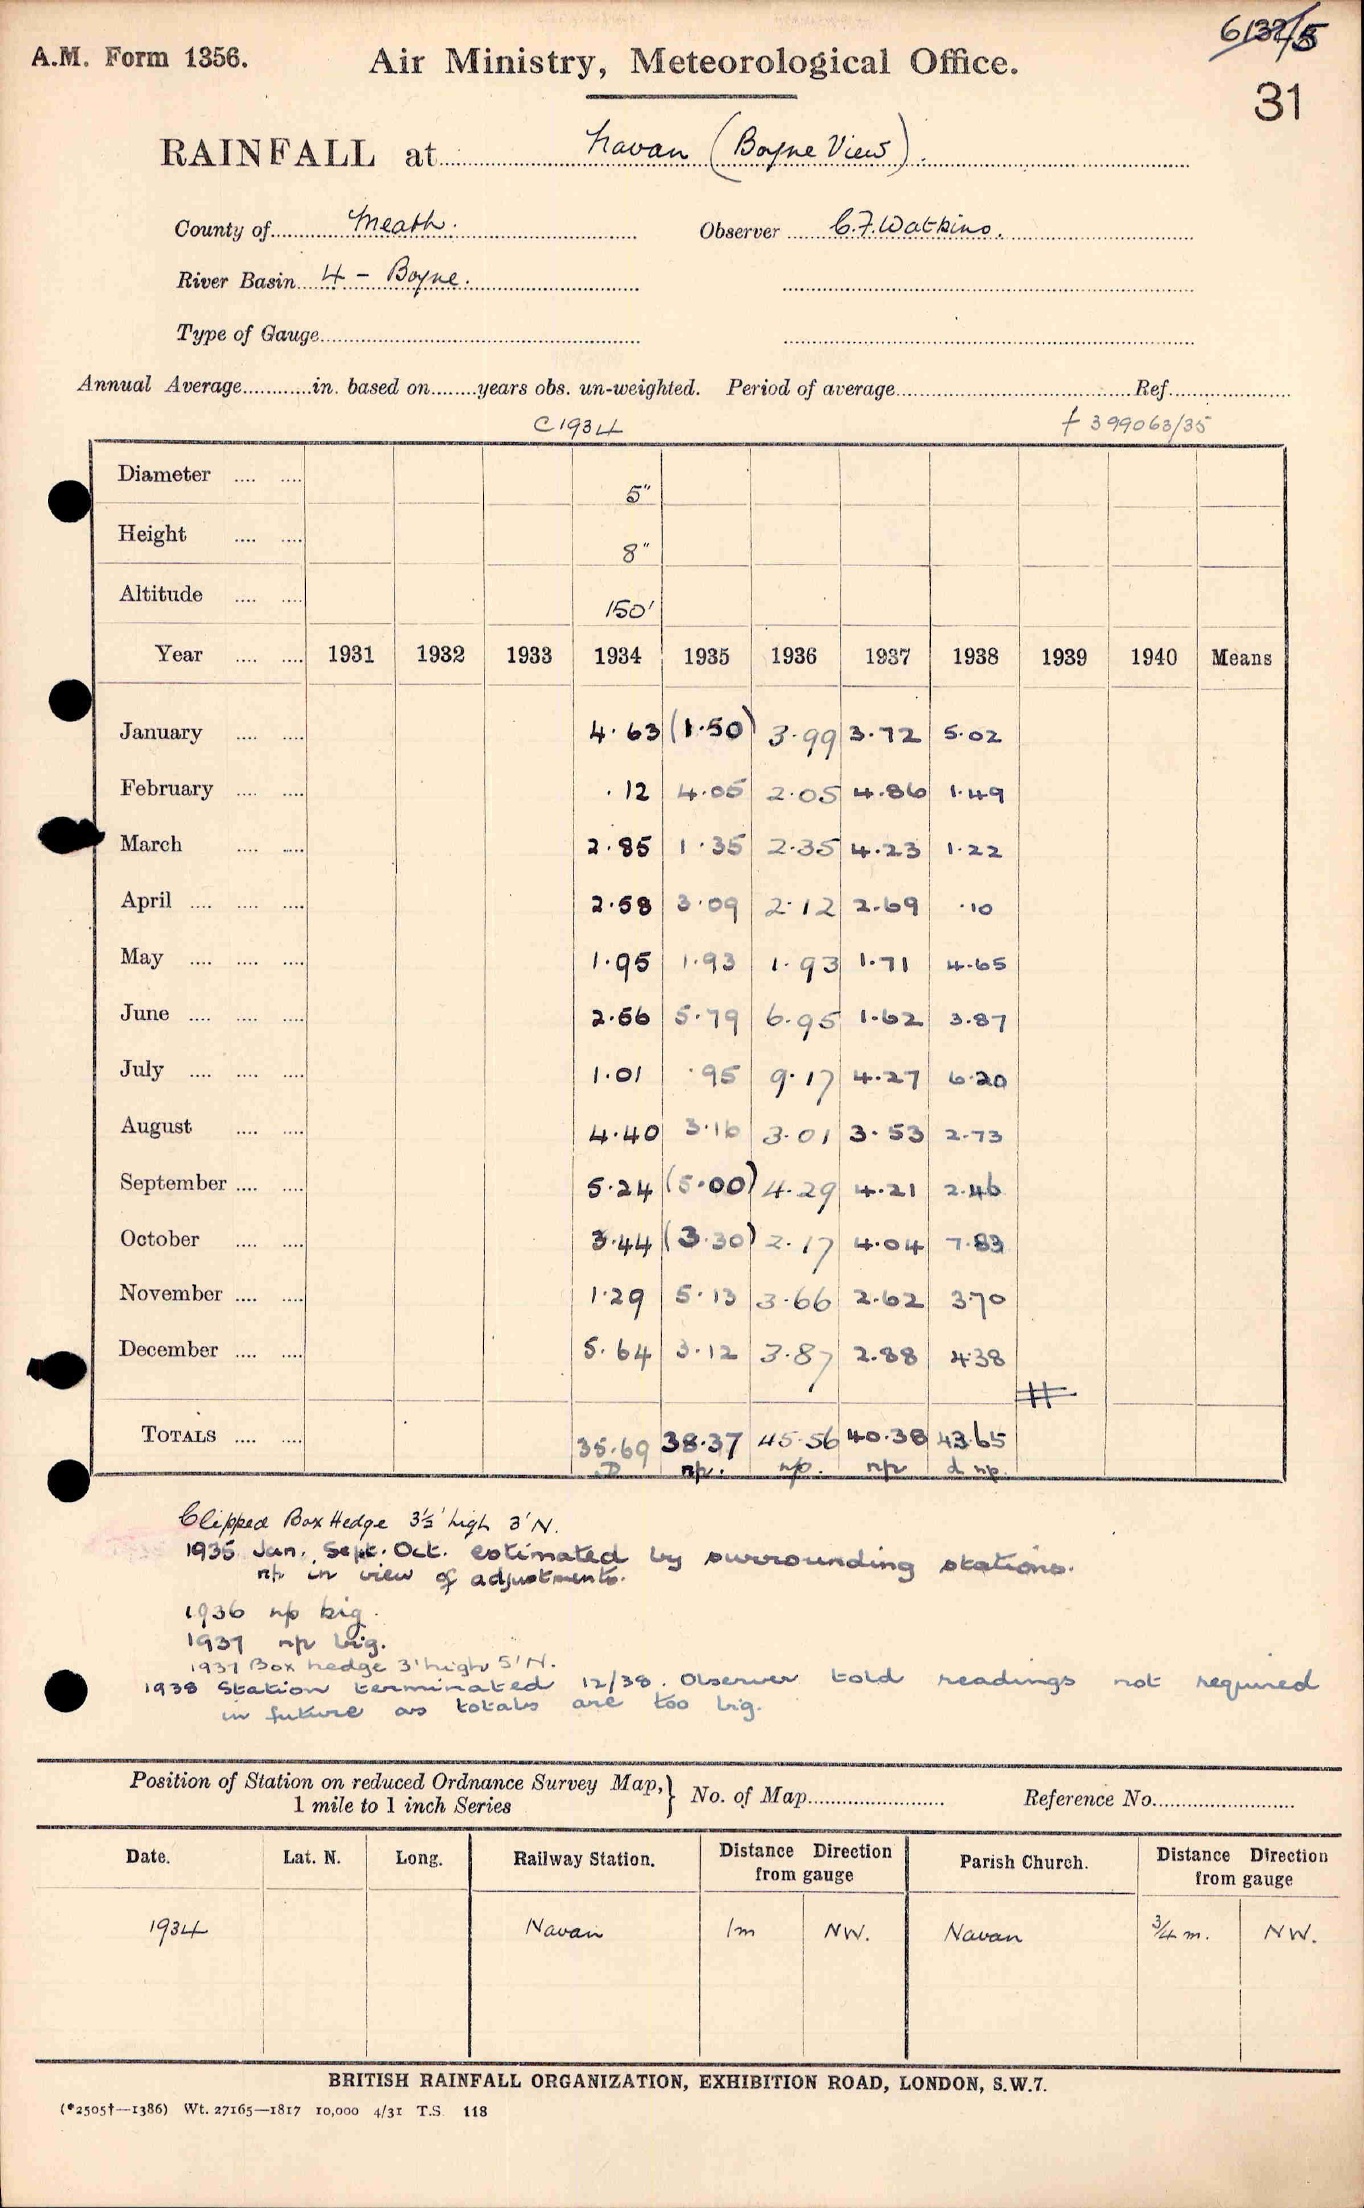 A.M. Form 1356.
Air Ministry, Meteorological Office.
6132/5
31
RAINFALL at Navan (Boyne View).
County of Meath. Observer C.F. Watkins.
River Basin 4 - Boyne.
Type of Gauge
Annual Average in. based on years obs. un-weighted. Period of average Ref.
C1934 f 399063/35
Diameter 5"
Height 8"
Altitude 150'
Year 1931 1932 1933 1934 1935 1936 1937 1938 1939 1940 Means
January 4.63 (1.50) 3.99 3.72 5.02
February .12 4.05 2.05 4.86 1.49
March 2.85 1.35 2.35 4.23 1.22
April 2.58 3.09 2.12 2.69 .10
May 1.95 1.93 1.93 1.71 4.65
June 2.56 5.79 6.95 1.62 3.87
July 1.01 .95 9.17 4.27 6.20
August 4.40 3.16 3.01 3.53 2.73
September 5.24 (5.00) 4.29 4.21 2.46
October 3.44 (3.30) 2.17 4.04 7.83
November 1.29 5.13 3.66 2.62 3.70
December 5.64 3.12 3.87 2.88 4.38
TOTALS 35.69 38.37 45.56 40.38 43.65
np. np. np d np.
Clipped Box Hedge 3½' high 3' N.
1935 Jan. Sept. Oct. estimated by surrounding stations.
np in view of adjustments.
1936 np big.
1937 np big.
1937 Box hedge 3' high 5' N.
1938 Station terminated 12/38. Observer told readings not required
in future as totals are too big.
Position of Station on reduced Ordnance Survey Map, 1 mile to 1 inch Series } No. of Map Reference No.
Date. Lat. N. Long. Railway Station. Distance Direction from gauge Parish Church. Distance Direction from gauge
1934 Navan 1m NW. Navan ¾ m. NW.
BRITISH RAINFALL ORGANIZATION, EXHIBITION ROAD, LONDON, S.W.7.
(*2505†—1386) Wt. 27165—1817 10,000 4/31 T.S. 118